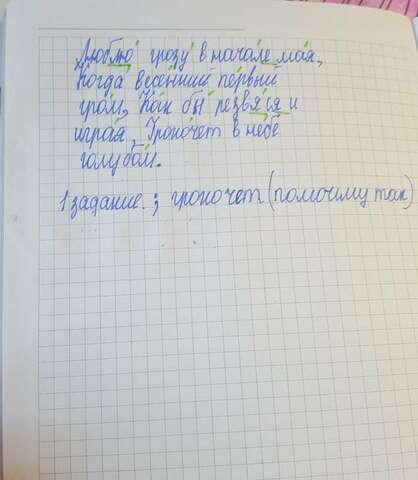 Люблю грозу в начале мая,
Когда весенний первый
гром, Как бы резвяся и
играя, Грохочет в небе
голубом.
1 задание. ; грохочет (помочиму так)